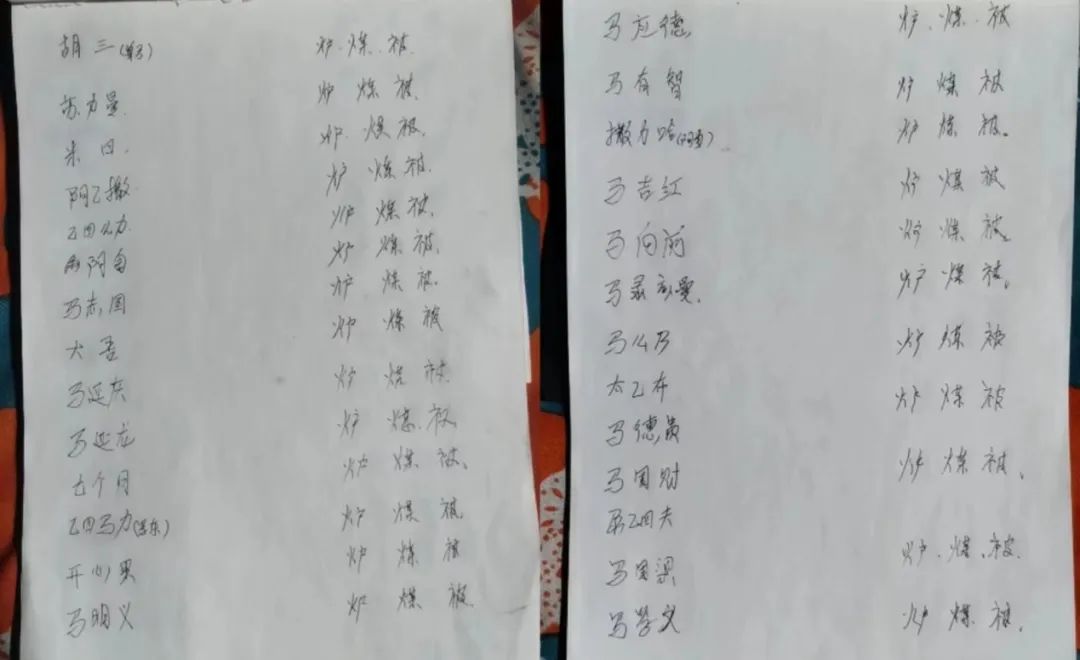 胡三 炉.煤.被.
苏力曼. 炉 煤 被.
米四. 炉.煤被.
阿乙撒. 炉 煤 被.
乙四力. 炉 煤 被.
阿 炉 煤 被.
马志国 炉 煤 被.
大吾 炉 煤 被
马延灰 炉 煤 被.
马延龙 炉 煤.被.
七个月 炉 煤 被.
乙四马力 炉 煤 被.
开心果 炉 煤 被
马明义 炉 煤 被.
马应德. 炉.煤.被
马有智 炉 煤 被
撒力 炉 煤 被.
马吉红 炉 煤 被
马向前 炉 煤 被.
马 炉 煤 被.
马么乃 炉 煤 被
太乙布 炉 煤 被
马德贵
马国财 炉 煤 被.
乙四夫
马国梁 炉.煤.被.
马学文 炉 煤 被.